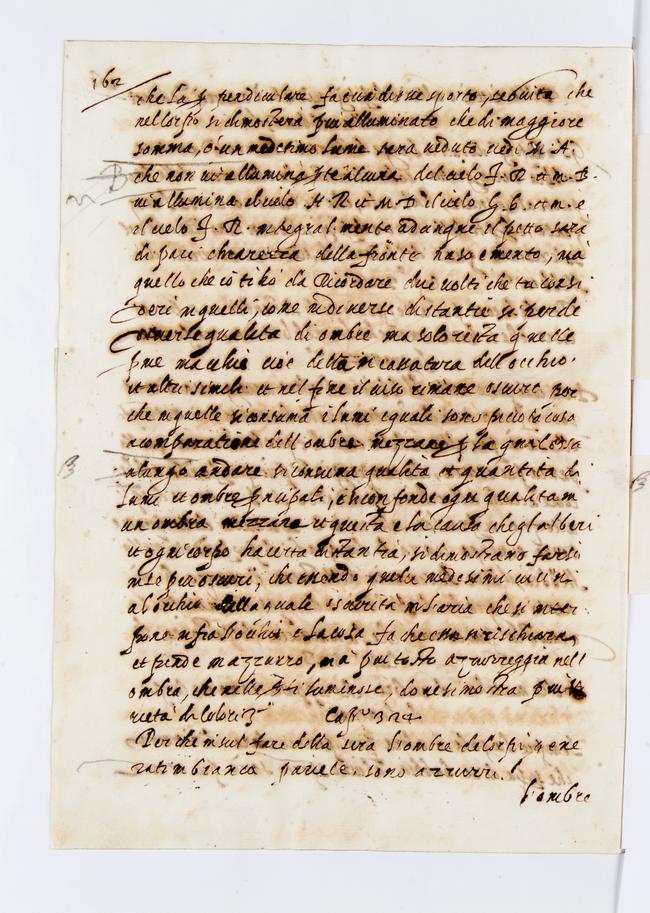 162
che la p perdiculare facendosene sporto, seguita che
nel corpo si dimostera piu alluminato che di maggiore
somma, è un medesimo lume sara ueduto uedi M. A.
che non ui allumina parte alcuna del uelo J. R. et m. B.
ui allumina el uelo H. R et m. D il uelo G. C. et m. e
il uelo J. R. integral mente adunque il petto sarà
di pari chiarezza della fronte naso e mento, mà
quello che io ti hò da Ricordare due uolti che tu consi
deri in quelli, come in diuerse distantie si perde
diuerse qualita di ombre ma solo resta quelle
prie machie cioè della incassatura dell occhio,
et altri simili et nel fine il uiso rimane oscuro por
che in quelle si consumà i lumi equali sono picciola cosa
a comparatione dell ombre mezzane p la qual cosa
a lungo andare si consuma qualita et quantita di
lumi et ombre principali, e si confonde ogni qualita in
un ombra mezzana et questa e la causa che gl alberi
et ogni corpo ha certa distantia, si dimostrano farsi
in se piu oscuri, che essendo quelli medesimi uicini
a l occhio della quale oscurità in l aria che si inter
pone in fra l occhio e la cosa fa che essa si rischiara,
et pende in azzurro, mà piu tosto azurreggia nell
ombra, che nelle parti luminose, doue si mostra piu la
uerità di colori Cap.º 324
Perche in sul fare della sera l'ombre de corpi gene
rati in bianca parete, sono azurri.
l'ombre
B
B